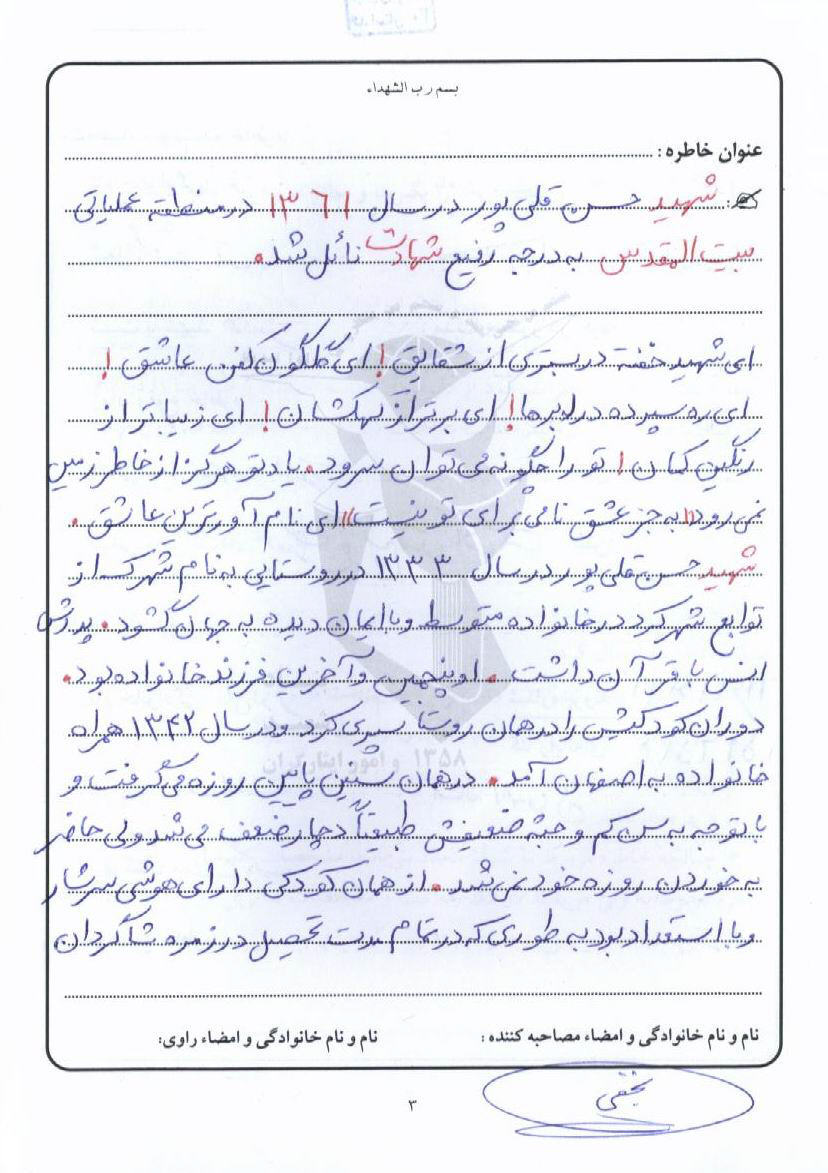 بسم رب الشهداء
عنوان خاطره :
شهید حسن قلی پور در سال ۱۳۶۱ در منطقه عملیاتی
بیت المقدس به درجه رفیع شهادت نائل شد.
ای شهید خفته در بستری از شقایق! ای گلگون کفن عاشق!
ای ره سپرده در ابرها! ای برتر از کهکشان! ای زیباتر از
رنگین کمان! تو را چگونه می توان سرود. یاد تو هرگز از خاطر زمین
نمی رود «به جز عشق نامی برای تو نیست» ای نام آورترین عاشق.
شهید حسن قلی پور در سال ۱۳۳۳ در روستایی به نام شهرک از
توابع شهرکرد در خانواده متوسط و با ایمان دیده به جهان گشود. پدرش
انس با قرآن داشت. او پنجمین و آخرین فرزند خانواده بود.
دوران کودکیش را در همان روستا سپری کرد و در سال ۱۳۴۲ همراه
خانواده به اصفهان آمد. در همان سنین پایین روزه می گرفت و
با توجه به سن کم و جثه ضعیفش طبیعتاً دچار ضعف می شد ولی حاضر
به خوردن روزه خود نمی شد. از همان کودکی دارای هوشی سرشار
و با استعداد بود به طوری که در تمام مدت تحصیل در زمره شاگردان
نام و نام خانوادگی و امضاء مصاحبه کننده : نام و نام خانوادگی و امضاء راوی:
نجفی
۳
۱۳۵۸ و امور ایثارگران